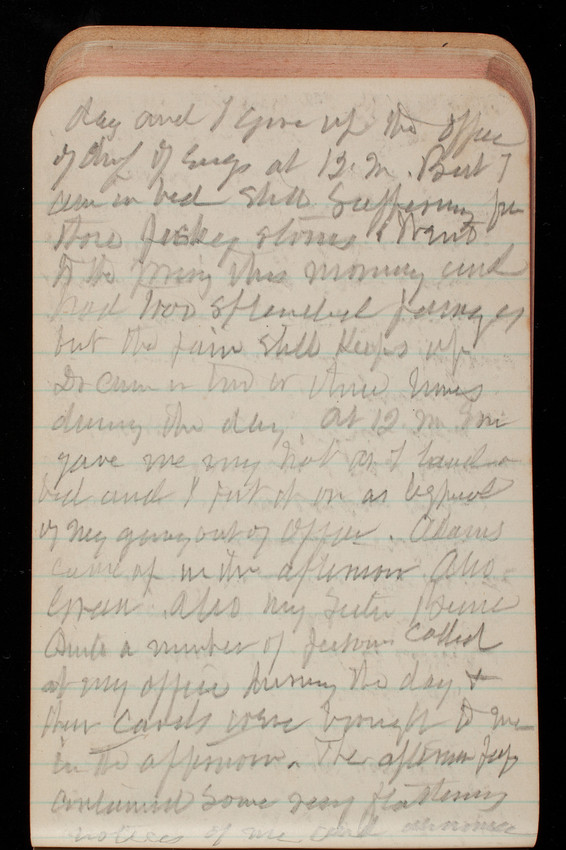 day and I give up the office
of Chf of Engs at 12 M. But I
am in bed still suffering fr
those pesky stones. Went
to the this morning and
had two splendid
but the pain still keeps up
Dr came in two or three times
during the day. At 12 M
gave me my hat as I laid in
bed and I put it on as
of my going out of office. Adams
came up in the afternoon also
Green. Also my sister
Quite a number of persons called
at my office during the day &
their cards were brought to me
in the afternoon. The afternoon
contained some very flattering
notices of me and